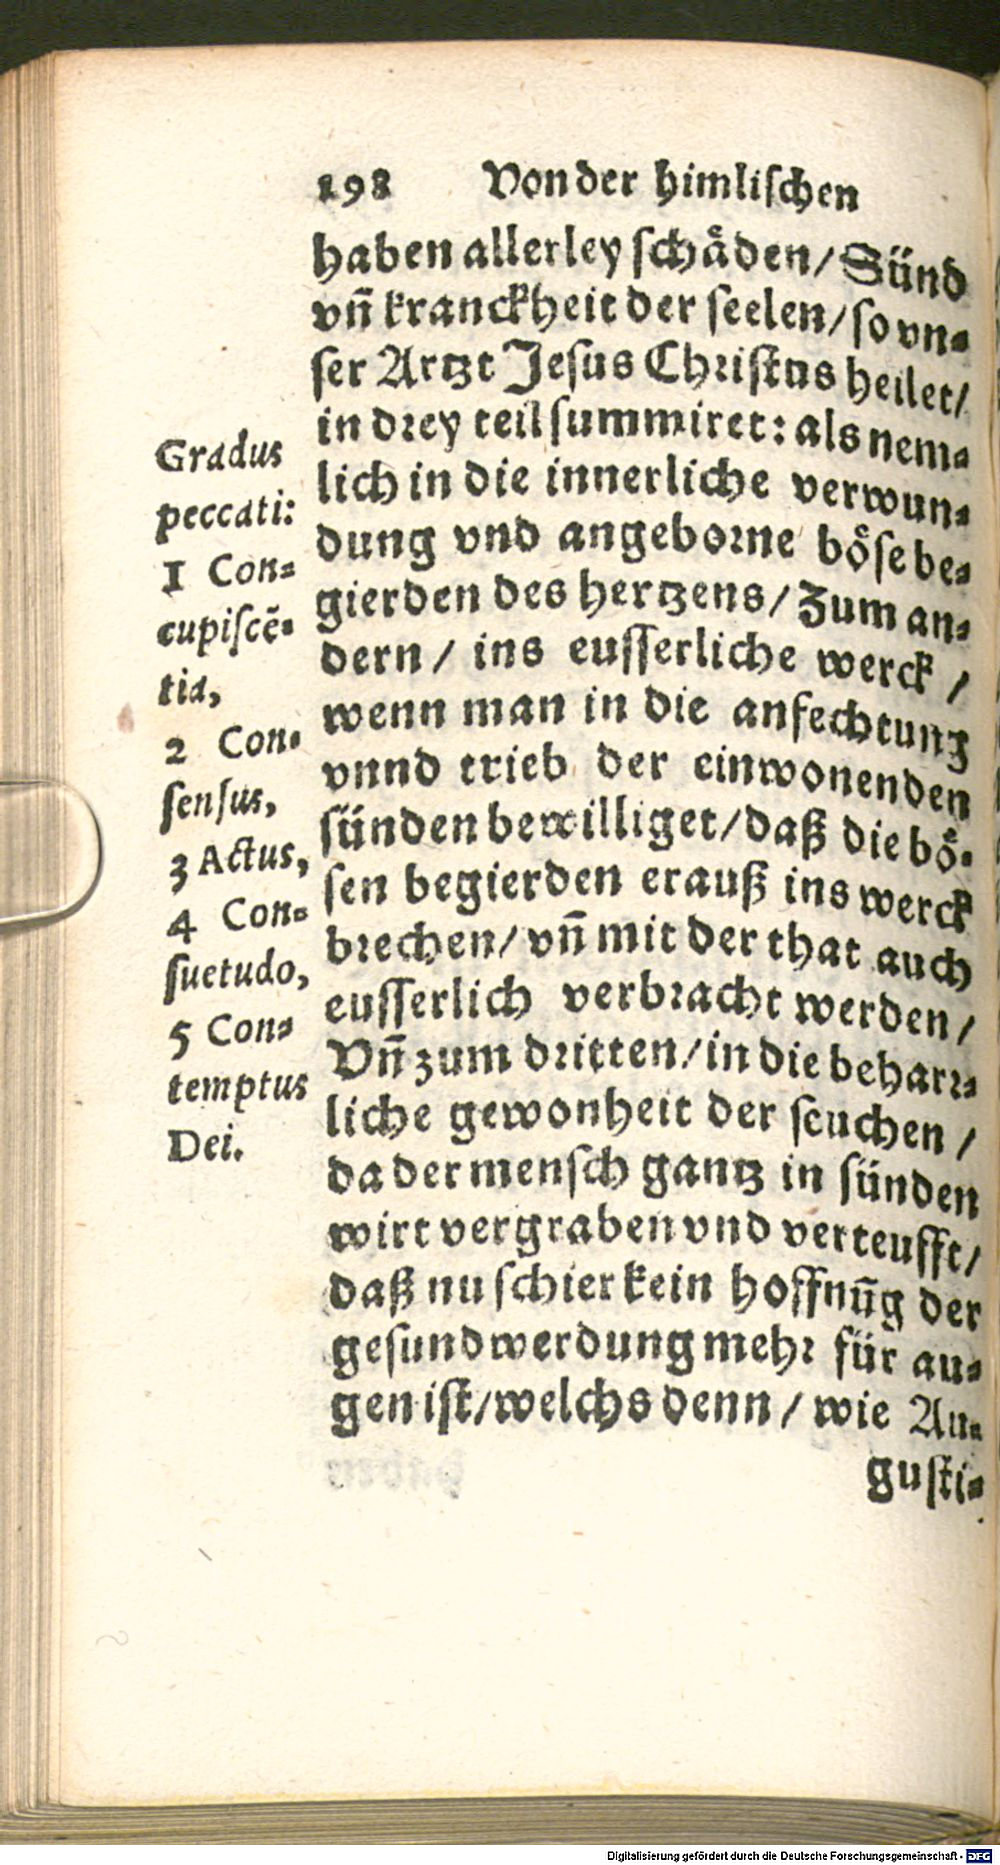 198 Von der himlischen
haben allerley schäden/ Sünd
vñ kranckheit der seelen/ so vn⸗
ser Artzt Jesus Christus heilet/
in drey teil summiret: als nem⸗
lich in die innerliche verwun⸗
dung vnd angeborne böse be⸗
gierden des hertzens/ Zum an⸗
dern/ ins eusserliche werck /
wenn man in die anfechtung
vnnd trieb der einwonenden
sünden bewilliget/ daß die bö⸗
sen begierden erauß ins werck
brechen/ vñ mit der that auch
eusserlich verbracht werden /
Vñ zum dritten/ in die beharr⸗
liche gewonheit der seuchen /
da der mensch gantz in sünden
wirt vergraben vnd verteufft/
daß nu schier kein hoffnūg der
gesundwerdung mehr für au⸗
gen ist/ welchs denn / wie Au⸗
gusti⸗
Gradus
peccati:
1 Con⸗
cupiscē⸗
tia,
2 Con⸗
sensus,
3 Actus,
4 Con⸗
suetudo,
5 Con⸗
temptus
Dei.
Digitalisierung gefördert durch die Deutsche Forschungsgemeinschaft - DFG